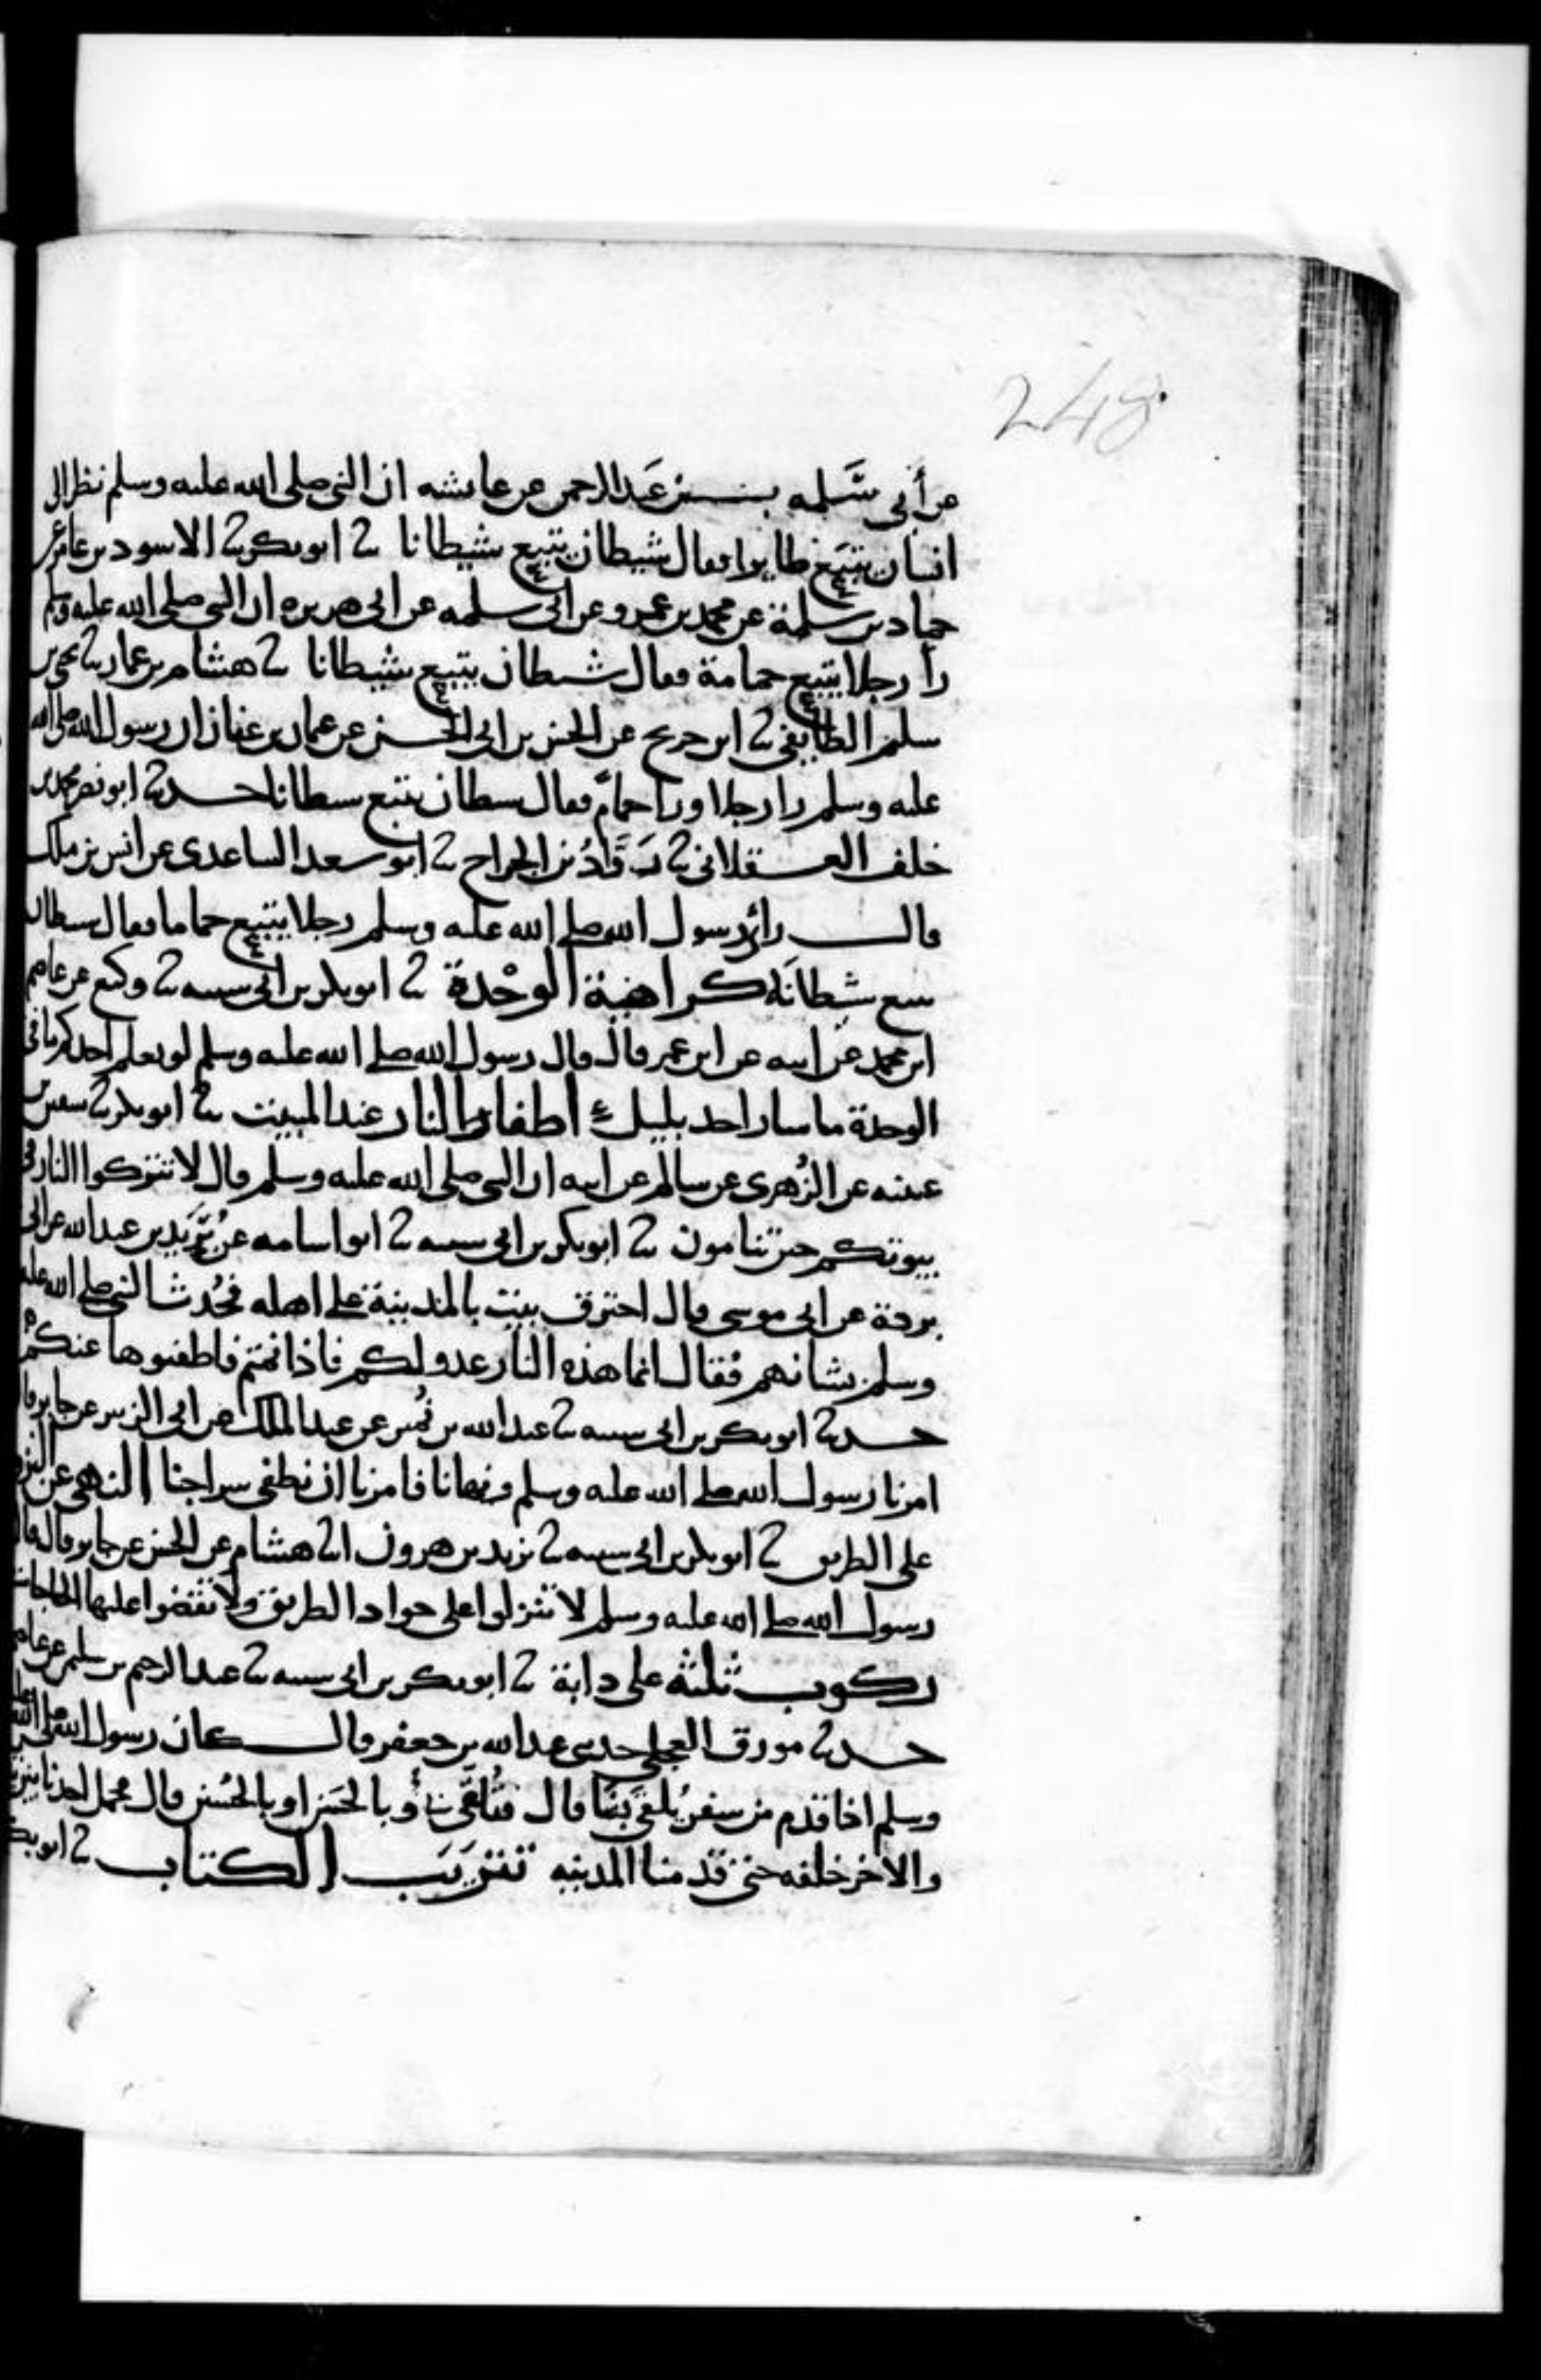 248
عن أبي سَلمه بن عَبد الرحمن عن عايشه ان النبي صلى الله عليه وسلم نظر الى
انسان يتبع طايرا فقال شيطان يتبع شيطانا ثنا ابو بكر ثنا الاسود بن عامر عن
حماد بن سلمة عن محمد بن عمرو عن ابي سلمه عن ابي هريره ان النبي صلى الله عليه وسلم
رأ رجلا يتبع حمامة فقال شيطان يتبع شيطانا ثنا هشام بن عمار ثنا يحيى بن
سليم الطايفي ثنا ابن جريج عن الحسن بن ابي الحسن عن عثمان بن عفان ان رسول الله صلى الله
عليه وسلم را رجلا ورا حمام فقال شيطان يتبع شيطانا حدثنا ابو نصر محمد بن
خلف العسقلاني ثنا رَوَّادُ بن الجراح ثنا ابو سعد الساعدي عن انس بن ملك
قال رأى رسول الله صلى الله عليه وسلم رجلا يتبع حماما فقال شيطان
يتبع شيطانَه كراهية الوحْدة ثنا ابو بكر بن ابي شيبه ثنا وكيع عن عاصم
ابن محمد عن ابيه عن ابن عمر قال قال رسول الله صلى الله عليه وسلم لو يعلم احدكم ما في
الوحدة ما سار احد بليل اطفاء النار عند المبيت ثنا ابو بكر ثنا سفين بن
عيينه عن الزُهري عن سالم عن ابيه ان النبي صلى الله عليه وسلم قال لا تتركوا النار في
بيوتكم حين تنامون ثنا ابو بكر بن ابي شيبه ثنا ابو اسامه عن بُرَيد بن عبد الله عن ابي
بردة عن ابي موسى قال احترق بيت بالمدينة على اهله فحُدث النبي صلى الله عليه
وسلم بشانهم فقال انما هذه النار عدو لكم فاذا نمتم فاطفئوها عنكم
حدثنا ابو بكر بن ابي شيبه ثنا عبد الله بن نُمير عن عبد الملك عن ابي الزبير عن جابر قال
امرنا رسول الله صلى الله عليه وسلم ونهانا فامرنا ان نطفي سراجنا النهي عن النزول
على الطريق ثنا ابو بكر بن ابي شيبه ثنا يزيد بن هرون انا هشام عن الحسن عن جابر قال قال
رسول الله صلى الله عليه وسلم لا تنزلوا على جواد الطريق ولا تقضوا عليها الحاجات
ركوب ثلثة على دابة ثنا ابو بكر بن ابي شيبه ثنا عبد الرحيم بن سليم عن عاصم
حدثنا مورق العجلي حدثني عبد الله بن جعفر قال كان رسول الله صلى الله عليه
وسلم اذا قدم من سفر تُلقيَ بنا قال فتُلقّي بنا وبالحَسَن او بالحُسين قال فحمل احدنا بين يديه
والاخر خلفه حتى قدمنا المدينه تتريَب الكتاب ثنا ابو بكر